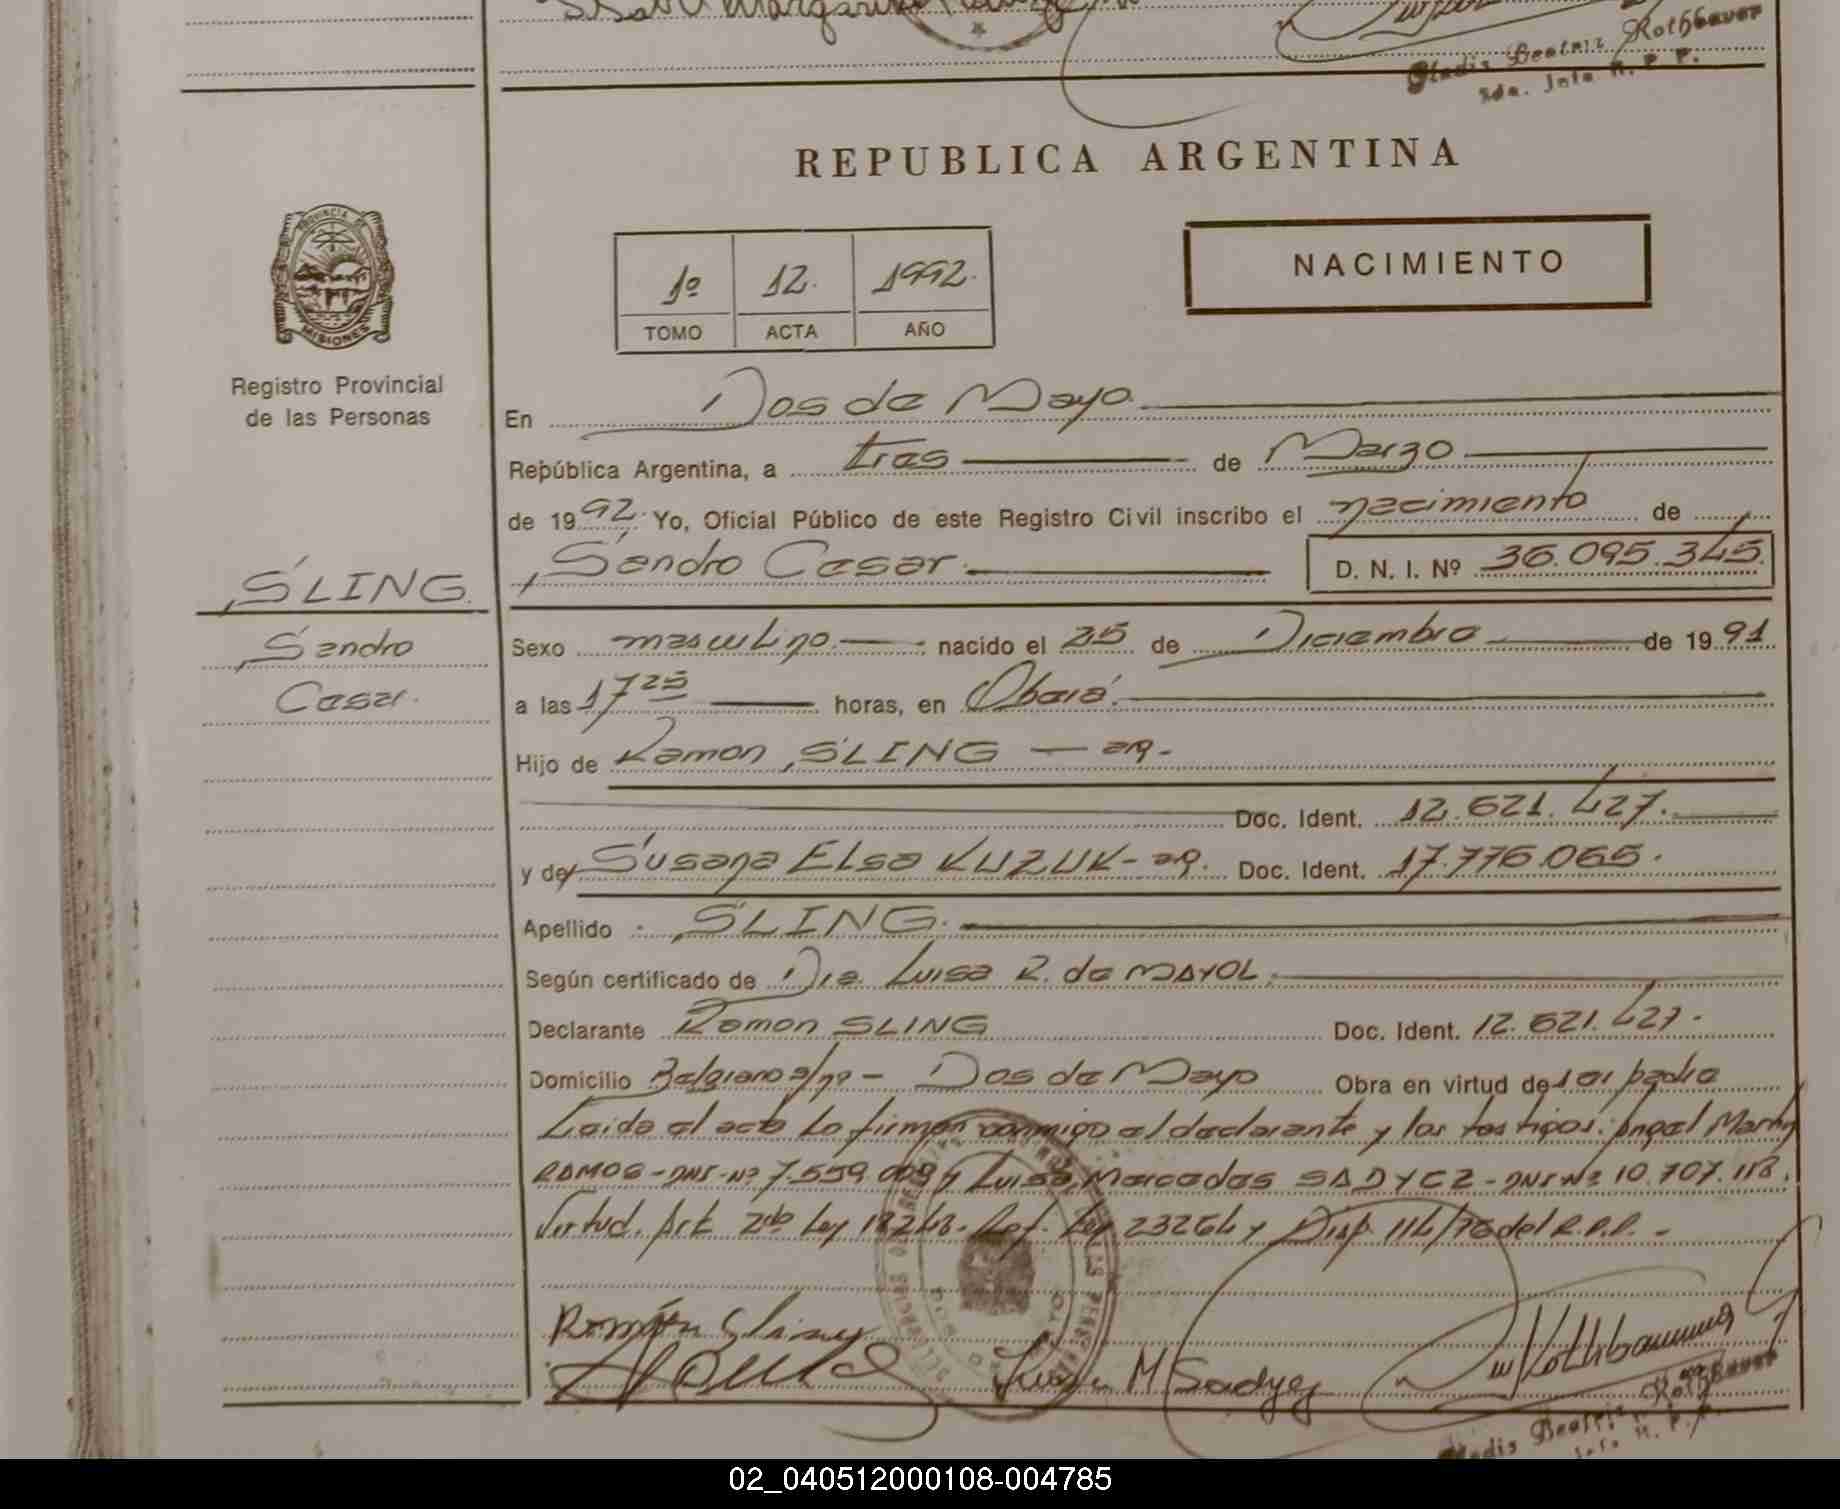 Gladis Beatriz Rothbauer
Sda. Jefa R. P. P.
REPUBLICA ARGENTINA
PROVINCIA DE
MISIONES
Registro Provincial
de las Personas
1º 12. 1992.
TOMO ACTA AÑO
NACIMIENTO
En Dos de Mayo
República Argentina, a tres de Marzo
de 1992. Yo, Oficial Público de este Registro Civil inscribo el nacimiento de
Sandro Cesar. D. N. I. Nº 36.095.345.
SLING
Sandro
Cesar.
Sexo masculino. nacido el 25 de Diciembre de 1991
a las 17 25 horas, en Oberá.
Hijo de Ramon SLING — arg.
Doc. Ident. 12.621.427.
y de Susana Elsa KUZUK - arg. Doc. Ident. 17.776.065.
Apellido SLING.
Según certificado de Dra. Luisa R. de MAYOL.
Declarante Ramon SLING Doc. Ident. 12.621.427.
Domicilio Belgrano s/nº - Dos de Mayo Obra en virtud de ser padre
Leida el acta la firman conmigo el declarante y los testigos: Angel Martin
RAMOS - DNI-Nº 7.559.009 y Luisa Mercedes SADYCZ - DNI Nº 10.707.118.
Virtud. Art. 2do Ley 18248. Ref. Ley 23264 y Disp. 114/76 del R.P.P. -
Román Sling
Luisa M Sadycz
Rothbauer
Gladis Beatriz Rothbauer
Jefa R. P. P.
02_040512000108-004785